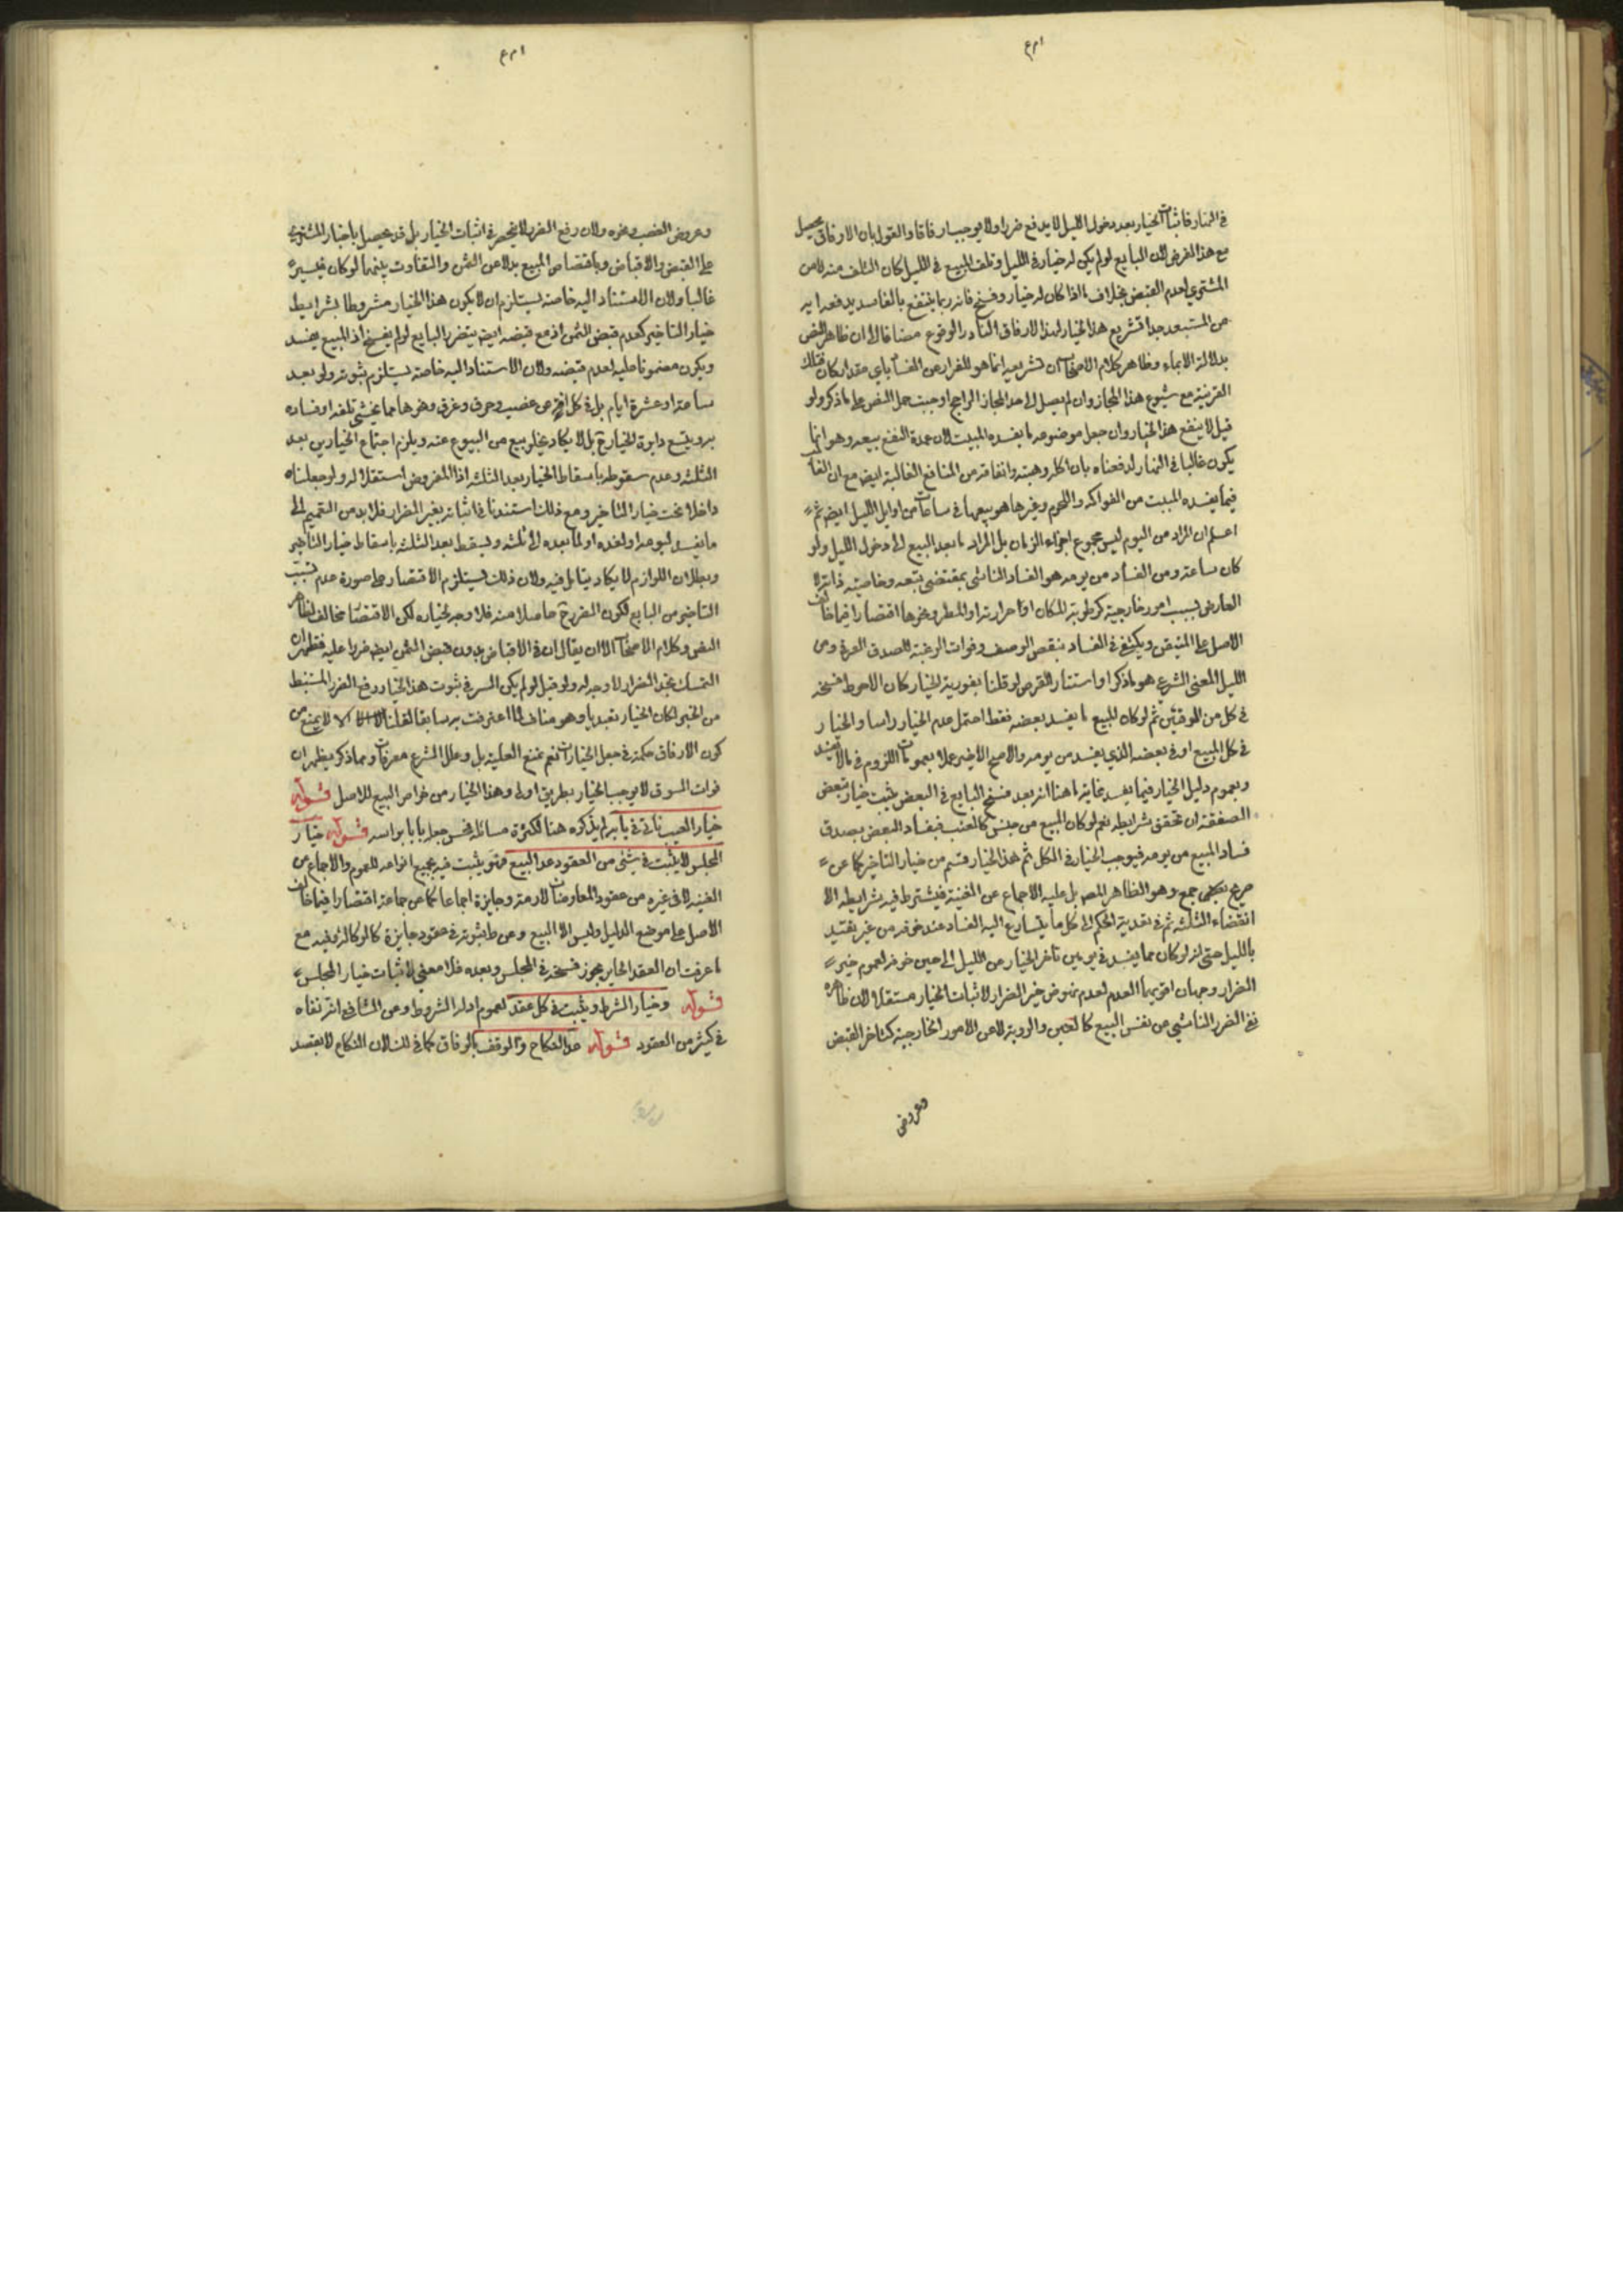 في النهار فاثبات الخيار بعد دخول الليل لا يدفع ضررا ولا يوجب ارفاقا والقول بان الارفاق يحصل
مع هذا الفرض لان البايع لو لم يكن له خيار في الليل وتلف المبيع في الليل كان التلف منه لا من
المشتري لعدم القبض بخلاف ما اذا كان له خيار وفسخ فانه ربما ينتفع بالفاسد يدفعه انه
من المستبعد جدا تشريع هذا الخيار لهذا الارفاق النادر الوقوع مضافا الى ان ظاهر النص
بدلالة الايماء وظاهر كلام الاصحاب ان تشريعه انما هو للفرار من الفساد باي مقدار كان فتلك
القرينة مع شيوع هذا المجاز وان لم يصل الى حد المجاز الراجح اوجبت حمل النص على ما ذكر ولو
قيل لا ينفع هذا الخيار وان جعل موضوعه ما يفسده المبيت لان عمدة النفع ببيعه وهو انما
يكون غالبا في النهار لدفعناه بان اكله وهبته وانفاقه من المنافع الغالبة ايضا مع ان الغالب
فيما يفسده المبيت من الفواكه واللحوم وغيرها هو بيعها في ساعات من اوايل الليل ايضا ثم
اعلم ان المراد من اليوم ليس مجموع اجزاء الزمان بل المراد ما بعد البيع الى دخول الليل ولو
كان ساعة ومن الفساد من يومه هو الفساد الناشي بمقتضى طبعه وخاصية ذاته لا
العارض بسبب امور خارجية كرطوبة المكان او حرارته او المطر ونحوها اقتصارا فيما خالف
الاصل على المتيقن ويكتفى في الفساد بنقص الوصف وفوات الرغبة للصدق العرفي ومن
الليل المعنى الشرعي هو ما ذكر او استتار القرص لو قلنا بفورية الخيار كان الاحوط فسخه
في كل من الوقتين ثم لو كان المبيع ما يفسد بعضه فقط احتمل عدم الخيار راسا والخيار
في كل المبيع او في بعضه الذي يفسد من يومه والاصح الاخير عملا بعمومات اللزوم في ما لا يفسد
وبعموم دليل الخيار فيما يفسد غاية ما هنا انه بعد فسخ البايع في البعض يثبت خيار تبعض
الصفقة ان تحقق شرايطه نعم لو كان المبيع من جنس كالعنب فبفساد البعض يصدق
فساد المبيع من يومه فيوجب الخيار في الكل ثم هذا الخيار قسم من خيار التاخير كما عن
صريح جمع وهو الظاهر بل عليه الاجماع عن الغنية فيشترط فيه شرايطه الا
انقضاء الثلثة ثم في تعدية الحكم الى كل ما يتسارع اليه الفساد عند خوفه من غير تقييد
بالليل حتى انه لو كان مما يفسد في يومين تاخر الخيار من الليل الى حين خوفه لعموم خبر
الضرار وجهان اقربهما العدم لعدم نهوض خبر الضرار لاثبات الخيار مستقلا لان ظاهره
نفي الضرر الناشي من نفس البيع كالعيب والروية لا من الامور الخارجية كتاخر القبض
وعروض
وعروض الغصب ونحوه ولان رفع الضرر لا ينحصر في اثبات الخيار بل قد يحصل باجبار المشتري
على القبض والاقباض وباقتصاص المبيع بدلا عن الثمن والتفاوت بينهما لو كان فيسيرة
غالبا ولان الاستناد اليه خاصة يستلزم ان لا يكون هذا الخيار مشروطا بشرايط
خيار التاخير كعدم قبض الثمن اذ مع قبضه ايضا يتضرر البايع لو لم يفسخ اذ المبيع يفسد
ويكون مضمونا عليه لعدم قبضه ولان الاستناد اليه خاصة يستلزم ثبوته ولو بعد
ساعة او عشرة ايام بل في كل افة من غصب وحرق وغرق ونحوها مما يخشى تلفه او فساده
به ويتسع دايرة الخيار ح بل لا يكاد يخلو بيع من البيوع عنه ويلزم اجتماع الخيارين بعد
الثلثة وعدم سقوطه باسقاط الخيار بعد الثلثة اذ المفروض استقلاله ولو جعلناه
داخلا تحت خيار التاخير ومع ذلك استندنا في اثباته بخبر الضرار فلا بد من التعميم الى
ما يفسد ليومه او لغده او لما بعده الى ثلثة ويسقط بعد الثلثة باسقاط خيار التاخير
وبطلان اللوازم لا يكاد يتامل فيه ولان ذلك يستلزم الاقتصار على صورة عدم تسبب
التاخير من البايع لكون الضرر ح حاصلا منه فلا وجه لخياره لكن الاقتصار مخالف لظاهر
النص وكلام الاصحاب الا ان يقال ان في الاقباض بدون قبض الثمن ايضا ضررا عليه فظهر ان
التمسك بخبر الضرار لا وجه له ولو قيل لو لم يكن السر في ثبوت هذا الخيار دفع الضرر المستنبط
من الخبر لكان الخيار تعبديا وهو مناف لما اعترفت به سابقا لقلنا لا يمنع من
كون الارفاق حكمة في جعل الخيارات نعم نمنع العلية بل وعلل الشرع معرفات ومما ذكر يظهر ان
فوات السوق لا يوجب الخيار بطريق اولى وهذا الخيار من خواص البيع للاصل قوله
خيار العيب ناتي في بابه لم يذكره هنا لكثرة مسائله فحسن جعل بابا براسه قوله خيار
المجلس لا يثبت في شئ من العقود عدا البيع فهو يثبت فيه بجميع انواعه للعموم والاجماع من
الغنية لا في غيره من عقود المعاوضات لازمة وجايزة اجماعا كما عن جماعة اقتصارا فيما خالف
الاصل على موضع الدليل وليس الا البيع وعن ط ثبوته في عقود جايزة كالوكالة وفيه مع
ما عرفت ان العقد الجايز يجوز فسخه في المجلس وبعده فلا معنى لاثبات خيار المجلس
قوله وخيار الشرط ويثبت في كل عقد لعموم ادلة الشروط وعن الشافي انه نفاه
في كثير من العقود قوله عدا النكاح والوقف بالوفاق كما في لك لان النكاح لا يقصد